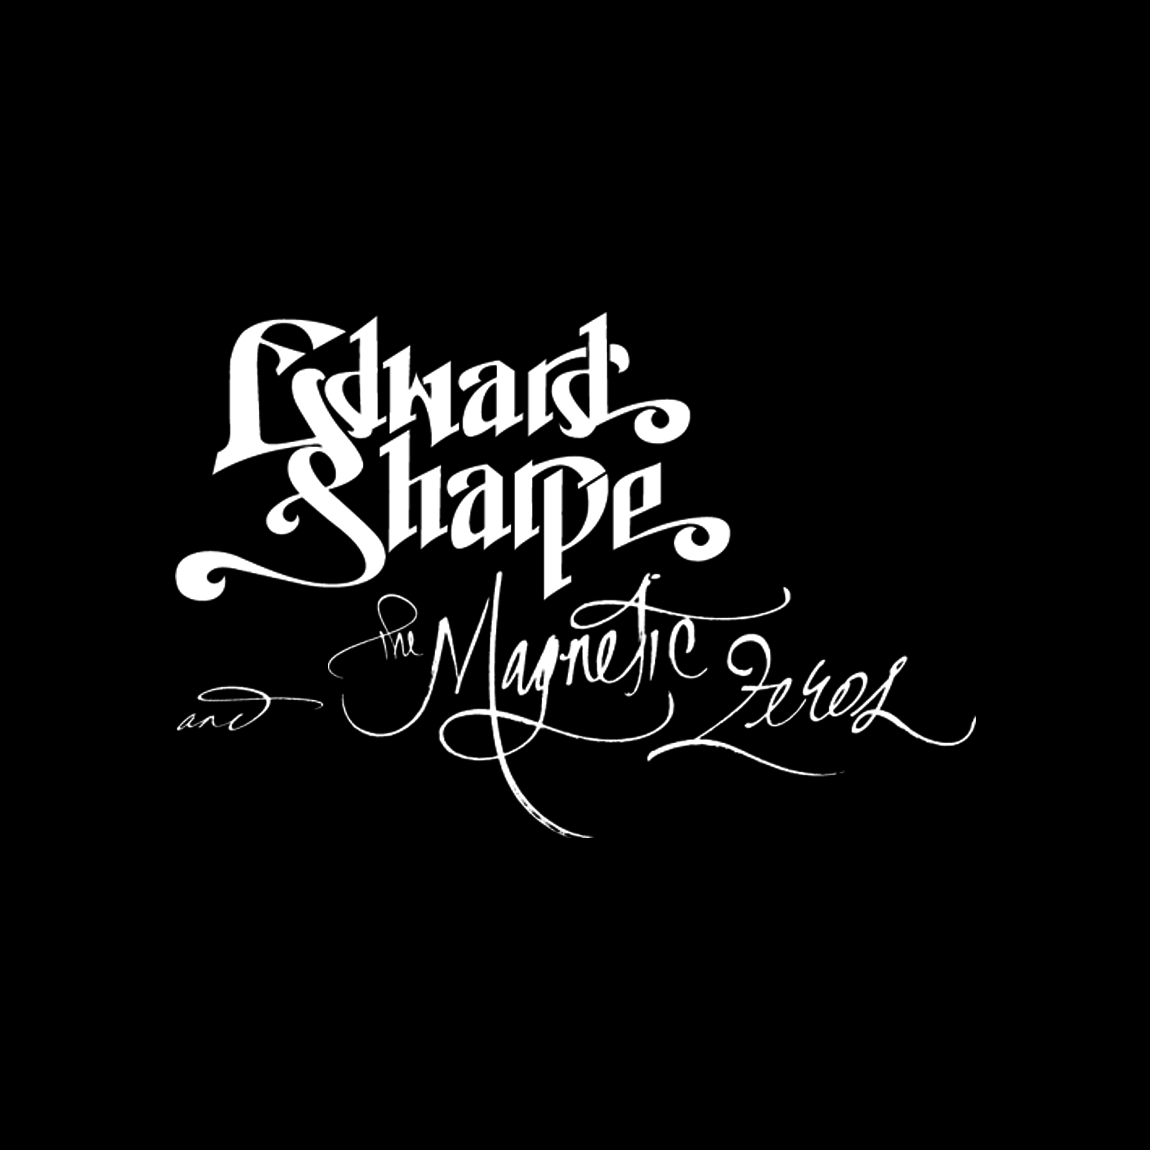 Edward
Sharpe
and the Magnetic Zeros